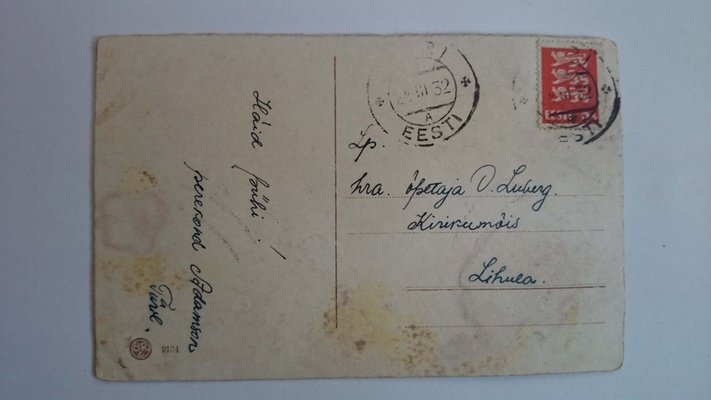 Häid pühi!
perekond Adamson
Türil.
9124
24 III 32
A
EESTI
EESTI
EESTI
Lp.
hra. õpetaja O. Luberg.
Kirikumõis
Lihula.